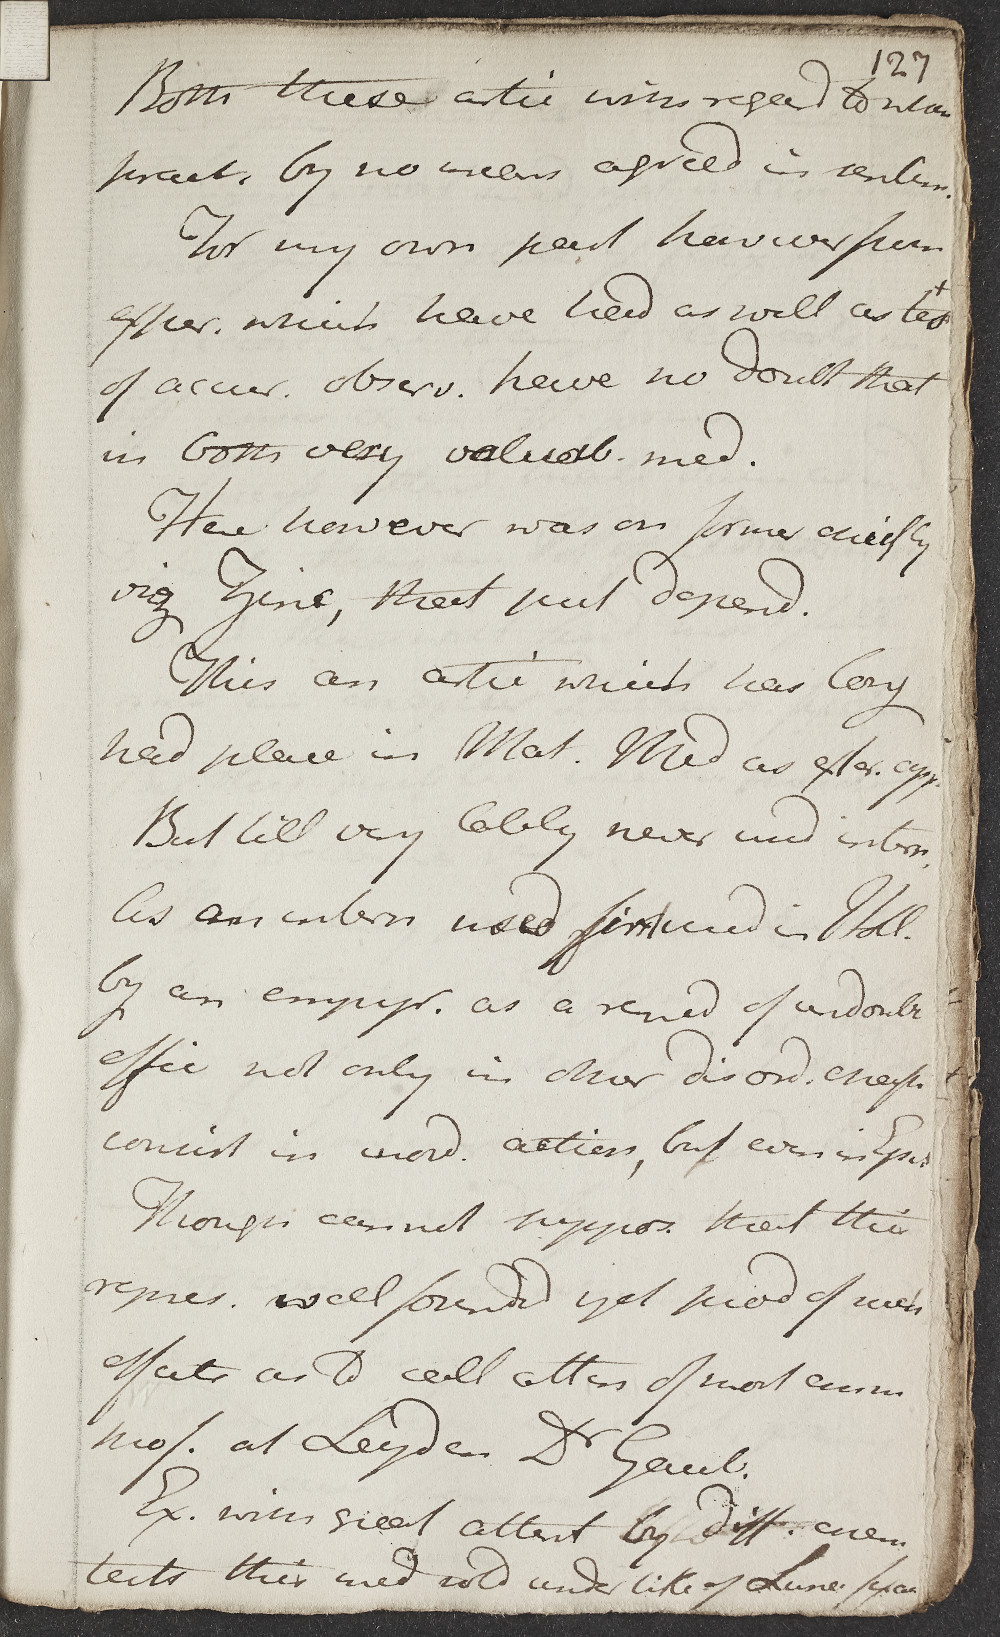 127
Both these artic with regard to
pract. by no means agreed in sentim.
For my own part however from
exper. which have had as well as test
of accur. observ. have no doubt that
in both very valuab. med.
Here however was on former chiefly
viz Zinc, that put depend.
This an artic which has long
had place in Mat. Med as exter. app.
But till very lately never used intern.
As an intern used first used in Holl.
by an empyr. as a remed of undoubt
effic not only in other disord. chiefly
consist in inord. action, but even in Epil
Though cannot suppos. that this
repres. well founded yet prod of such
effects as to call atten of most emin
prof. at Leyden Dr Gaub.
Ex. with great attent by diff. chem
tests this med sold under title of Luna